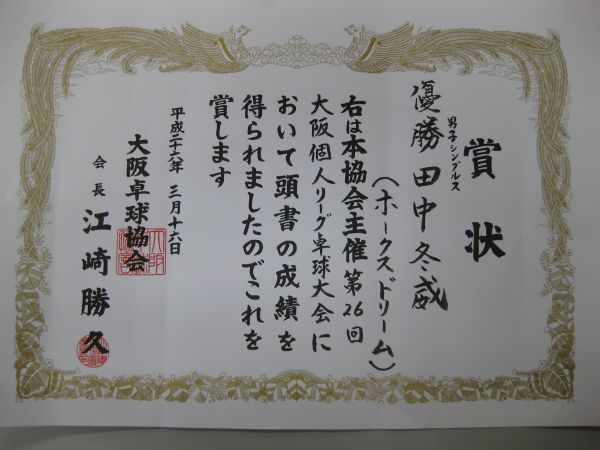 賞状
男子シングルス
優勝 田中冬威
（ホークスドリーム）
右は本協会主催第26回
大阪個人リーグ卓球大会に
おいて頭書の成績を
得られましたのでこれを
賞します
平成二十六年 三月十六日
大阪卓球協会
会長 江崎勝久